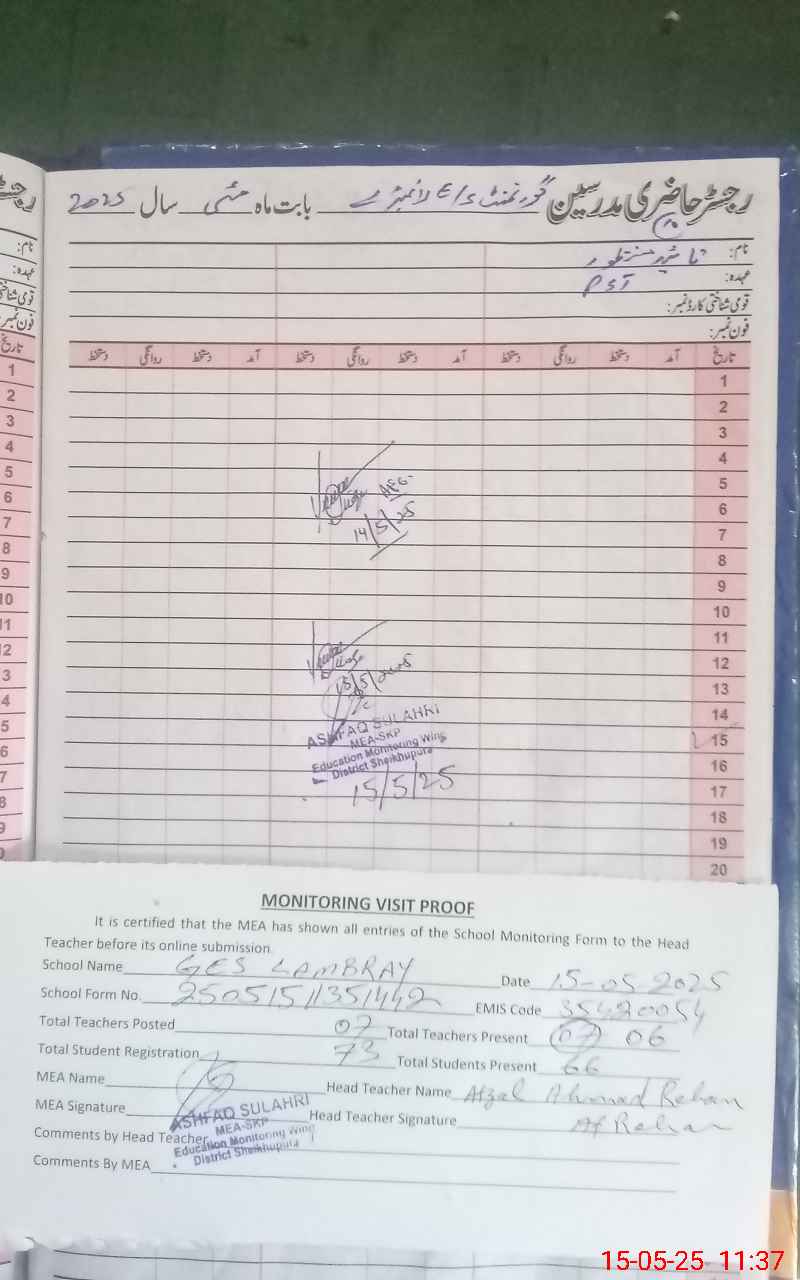 رجسٹر حاضری مدرسین گورنمنٹ بابت ماہ مئی سال 2025
نام:
عہدہ: PST
قومی شناختی کارڈ نمبر:
فون نمبر:
تاریخ آمد دستخط روانگی دستخط آمد دستخط روانگی دستخط آمد دستخط روانگی دستخط
1
2
3
4
5
6
7
8
9
10
11
12
13
14
15
16
17
18
19
20
AEO
14/5/25
15/5/2025
ASHFAQ SULAHRI
MEA-SKP
Education Monitoring Wing
District Sheikhupura
15/5/25
رجسٹر
نام:
عہدہ:
قومی شناختی
فون نمبر:
تاریخ
1
2
3
4
5
6
7
8
9
10
11
MONITORING VISIT PROOF
It is certified that the MEA has shown all entries of the School Monitoring Form to the Head
Teacher before its online submission.
School Name GES LAMBRAY Date 15-05-2025
School Form No. 25051511351442 EMIS Code 35420054
Total Teachers Posted 07 Total Teachers Present 07 06
Total Student Registration 73 Total Students Present 66
MEA Name Head Teacher Name Afzal Ahmad Rehan
MEA Signature Head Teacher Signature Af Rehan
ASHFAQ SULAHRI
MEA-SKP
Education Monitoring Wing
District Sheikhupura
Comments by Head Teacher
Comments By MEA
15-05-25 11:37